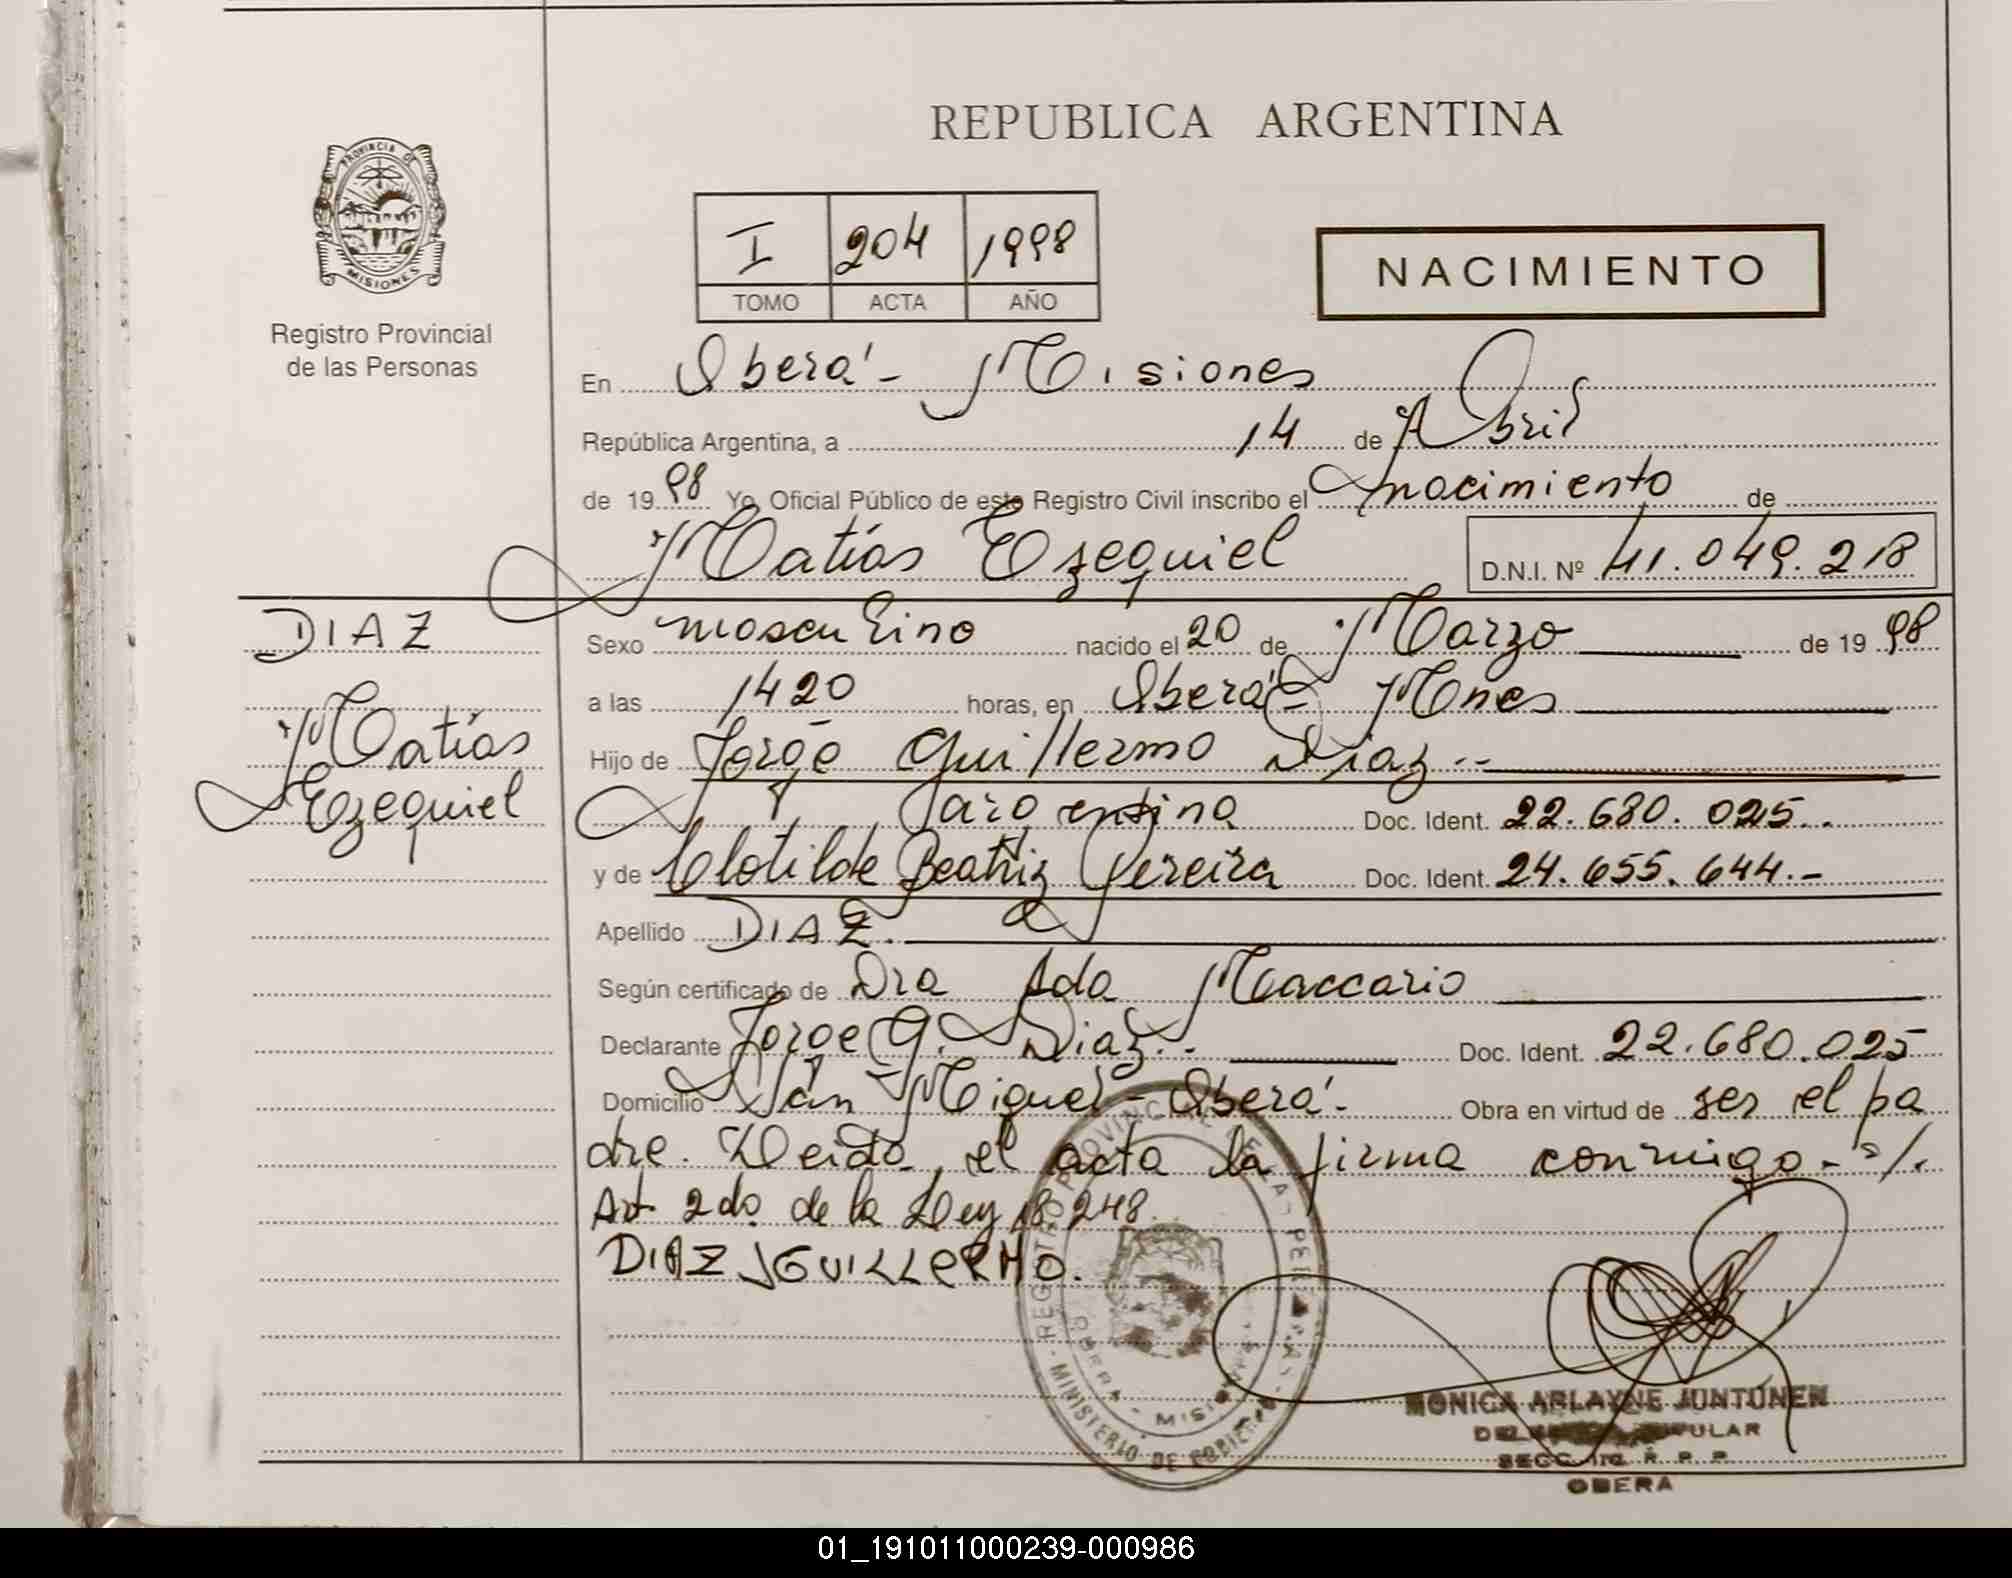 REPUBLICA ARGENTINA
PROVINCIA DE
MISIONES
Registro Provincial
de las Personas
I 204 1998
TOMO ACTA AÑO
NACIMIENTO
En Oberá - Misiones
República Argentina, a 14 de Abril
de 1998 Yo Oficial Público de este Registro Civil inscribo el nacimiento de
Matías Ezequiel D.N.I. Nº 41.049.218
DIAZ
Matías
Ezequiel
Sexo masculino nacido el 20 de Marzo de 1998
a las 1420 horas, en Oberá - Mnes
Hijo de Jorge Guillermo Diaz.-
argentina Doc. Ident. 22.680.025.
y de Clotilde Beatriz Pereira Doc. Ident. 24.655.644.-
Apellido DIAZ.
Según certificado de Dra Ada Maccario
Declarante Jorge G. Diaz.- Doc. Ident. 22.680.025
Domicilio San Miguel - Oberá.- Obra en virtud de ser el pa
dre. Leida el acta la firma conmigo.-
Art 2do. de la Ley 18.248.
DIAZ JGUILLERMO.
REGISTRO PROVINCIAL DE LAS PERSONAS - MINISTERIO DE GOBIERNO
OBERA - MISIONES
MONICA ARLAYNE JUNTUNEN
SECC. 1ra. R. P. P.
OBERA
01_191011000239-000986